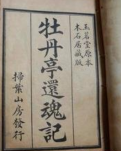 玉茗堂原本
木石居藏版
牡丹亭還魂記
掃葉山房發行